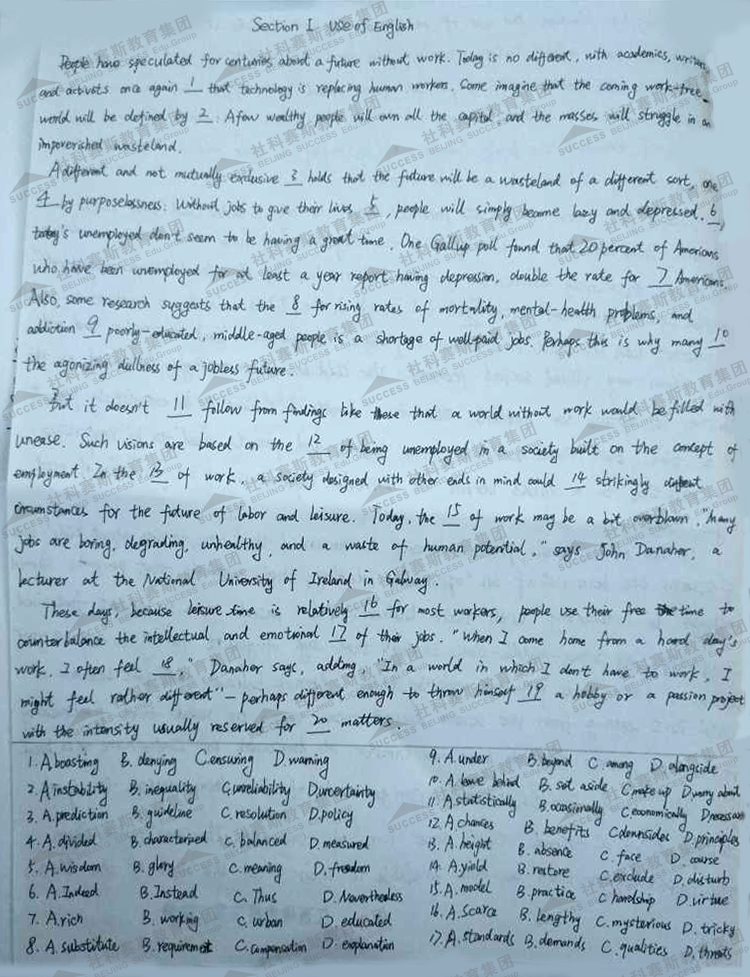 Section I Use of English
People have speculated for centuries about a future without work. Today is no different, with academics, writers,
and activists once again 1 that technology is replacing human workers. Some imagine that the coming work-free
world will be defined by 2. A few wealthy people will own all the capital, and the masses will struggle in an
impoverished wasteland.
A different and not mutually exclusive 3 holds that the future will be a wasteland of a different sort, one
4 by purposelessness: Without jobs to give their lives 5, people will simply become lazy and depressed. 6,
today's unemployed don't seem to be having a great time. One Gallup poll found that 20 percent of Americans
who have been unemployed for at least a year report having depression, double the rate for 7 Americans.
Also, some research suggests that the 8 for rising rates of mortality, mental-health problems, and
addiction 9 poorly-educated, middle-aged people is a shortage of well-paid jobs. Perhaps this is why many 10
the agonizing dullness of a jobless future.
But it doesn't 11 follow from findings like these that a world without work would be filled with
unease. Such visions are based on the 12 of being unemployed in a society built on the concept of
employment. In the 13 of work, a society designed with other ends in mind could 14 strikingly different
circumstances for the future of labor and leisure. Today, the 15 of work may be a bit overblown. "Many
jobs are boring, degrading, unhealthy, and a waste of human potential," says John Danaher, a
lecturer at the National University of Ireland in Galway.
These days, because leisure time is relatively 16 for most workers, people use their free time to
counterbalance the intellectual and emotional 17 of their jobs. "When I come home from a hard day's
work, I often feel 18," Danaher says, adding, "In a world in which I don't have to work, I
might feel rather different"—perhaps different enough to throw himself 19 a hobby or a passion project
with the intensity usually reserved for 20 matters.
1. A boasting B. denying C. ensuring D. warning
2. A instability B. inequality C. unreliability D. uncertainty
3. A. prediction B. guideline C. resolution D. policy
4. A. divided B. characterized C. balanced D. measured
5. A. wisdom B. glory C. meaning D. freedom
6. A. Indeed B. Instead C. Thus D. Nevertheless
7. A. rich B. working C. urban D. educated
8. A. substitute B. requirement C. compensation D. explanation
9. A. under B. beyond C. among D. alongside
10. A. leave behind B. set aside C. make up D. worry about
11. A. statistically B. occasionally C. economically D.
12. A chances B. benefits C. downsides D. principles
13. A. height B. absence C. face D. course
14. A. yield B. restore C. exclude D. disturb
15. A. model B. practice C. hardship D. virtue
16. A. Scarce B. lengthy C. mysterious D. tricky
17. A. standards B. demands C. qualities D. threats
社科赛斯教育集团
BEIJING SUCCESS EDU.Group
SUCCESS